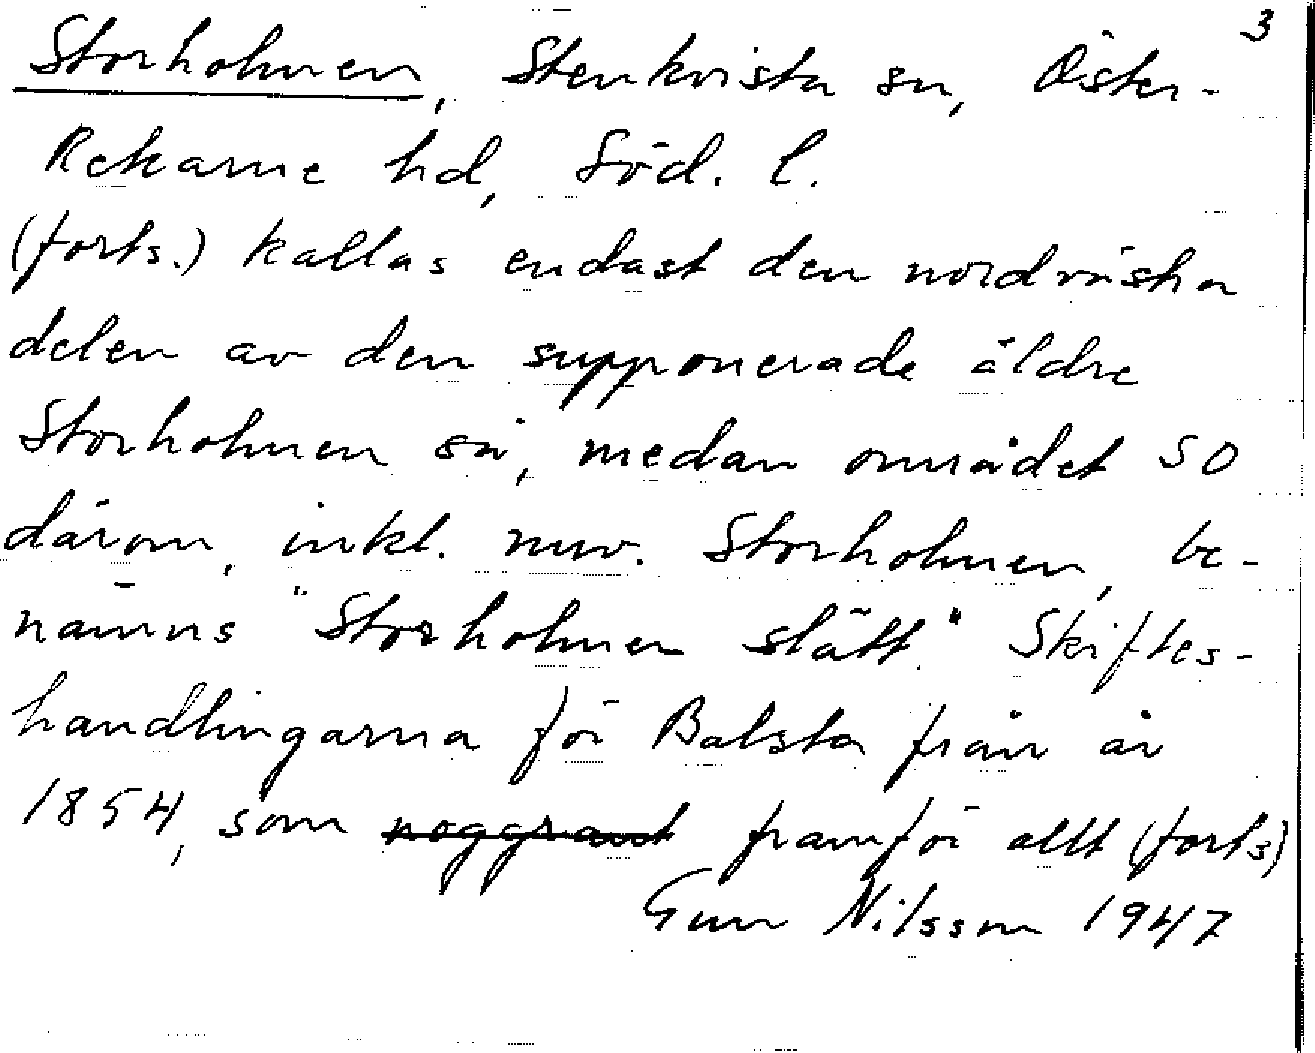 3
Storholmen, Stenkvista sn, Öster-
Rekarne hd, Söd. l.
(forts.) kallas endast den nordvästra
delen av den supponerade äldre
Storholmen så, medan området SO
därom, inkl. nuv. Storholmen, be-
nämns "Storholmen slätt." Skiftes-
handlingarna för Balsta från år
1854, som noggrant framför allt (forts)
Gun Nilsson 1947